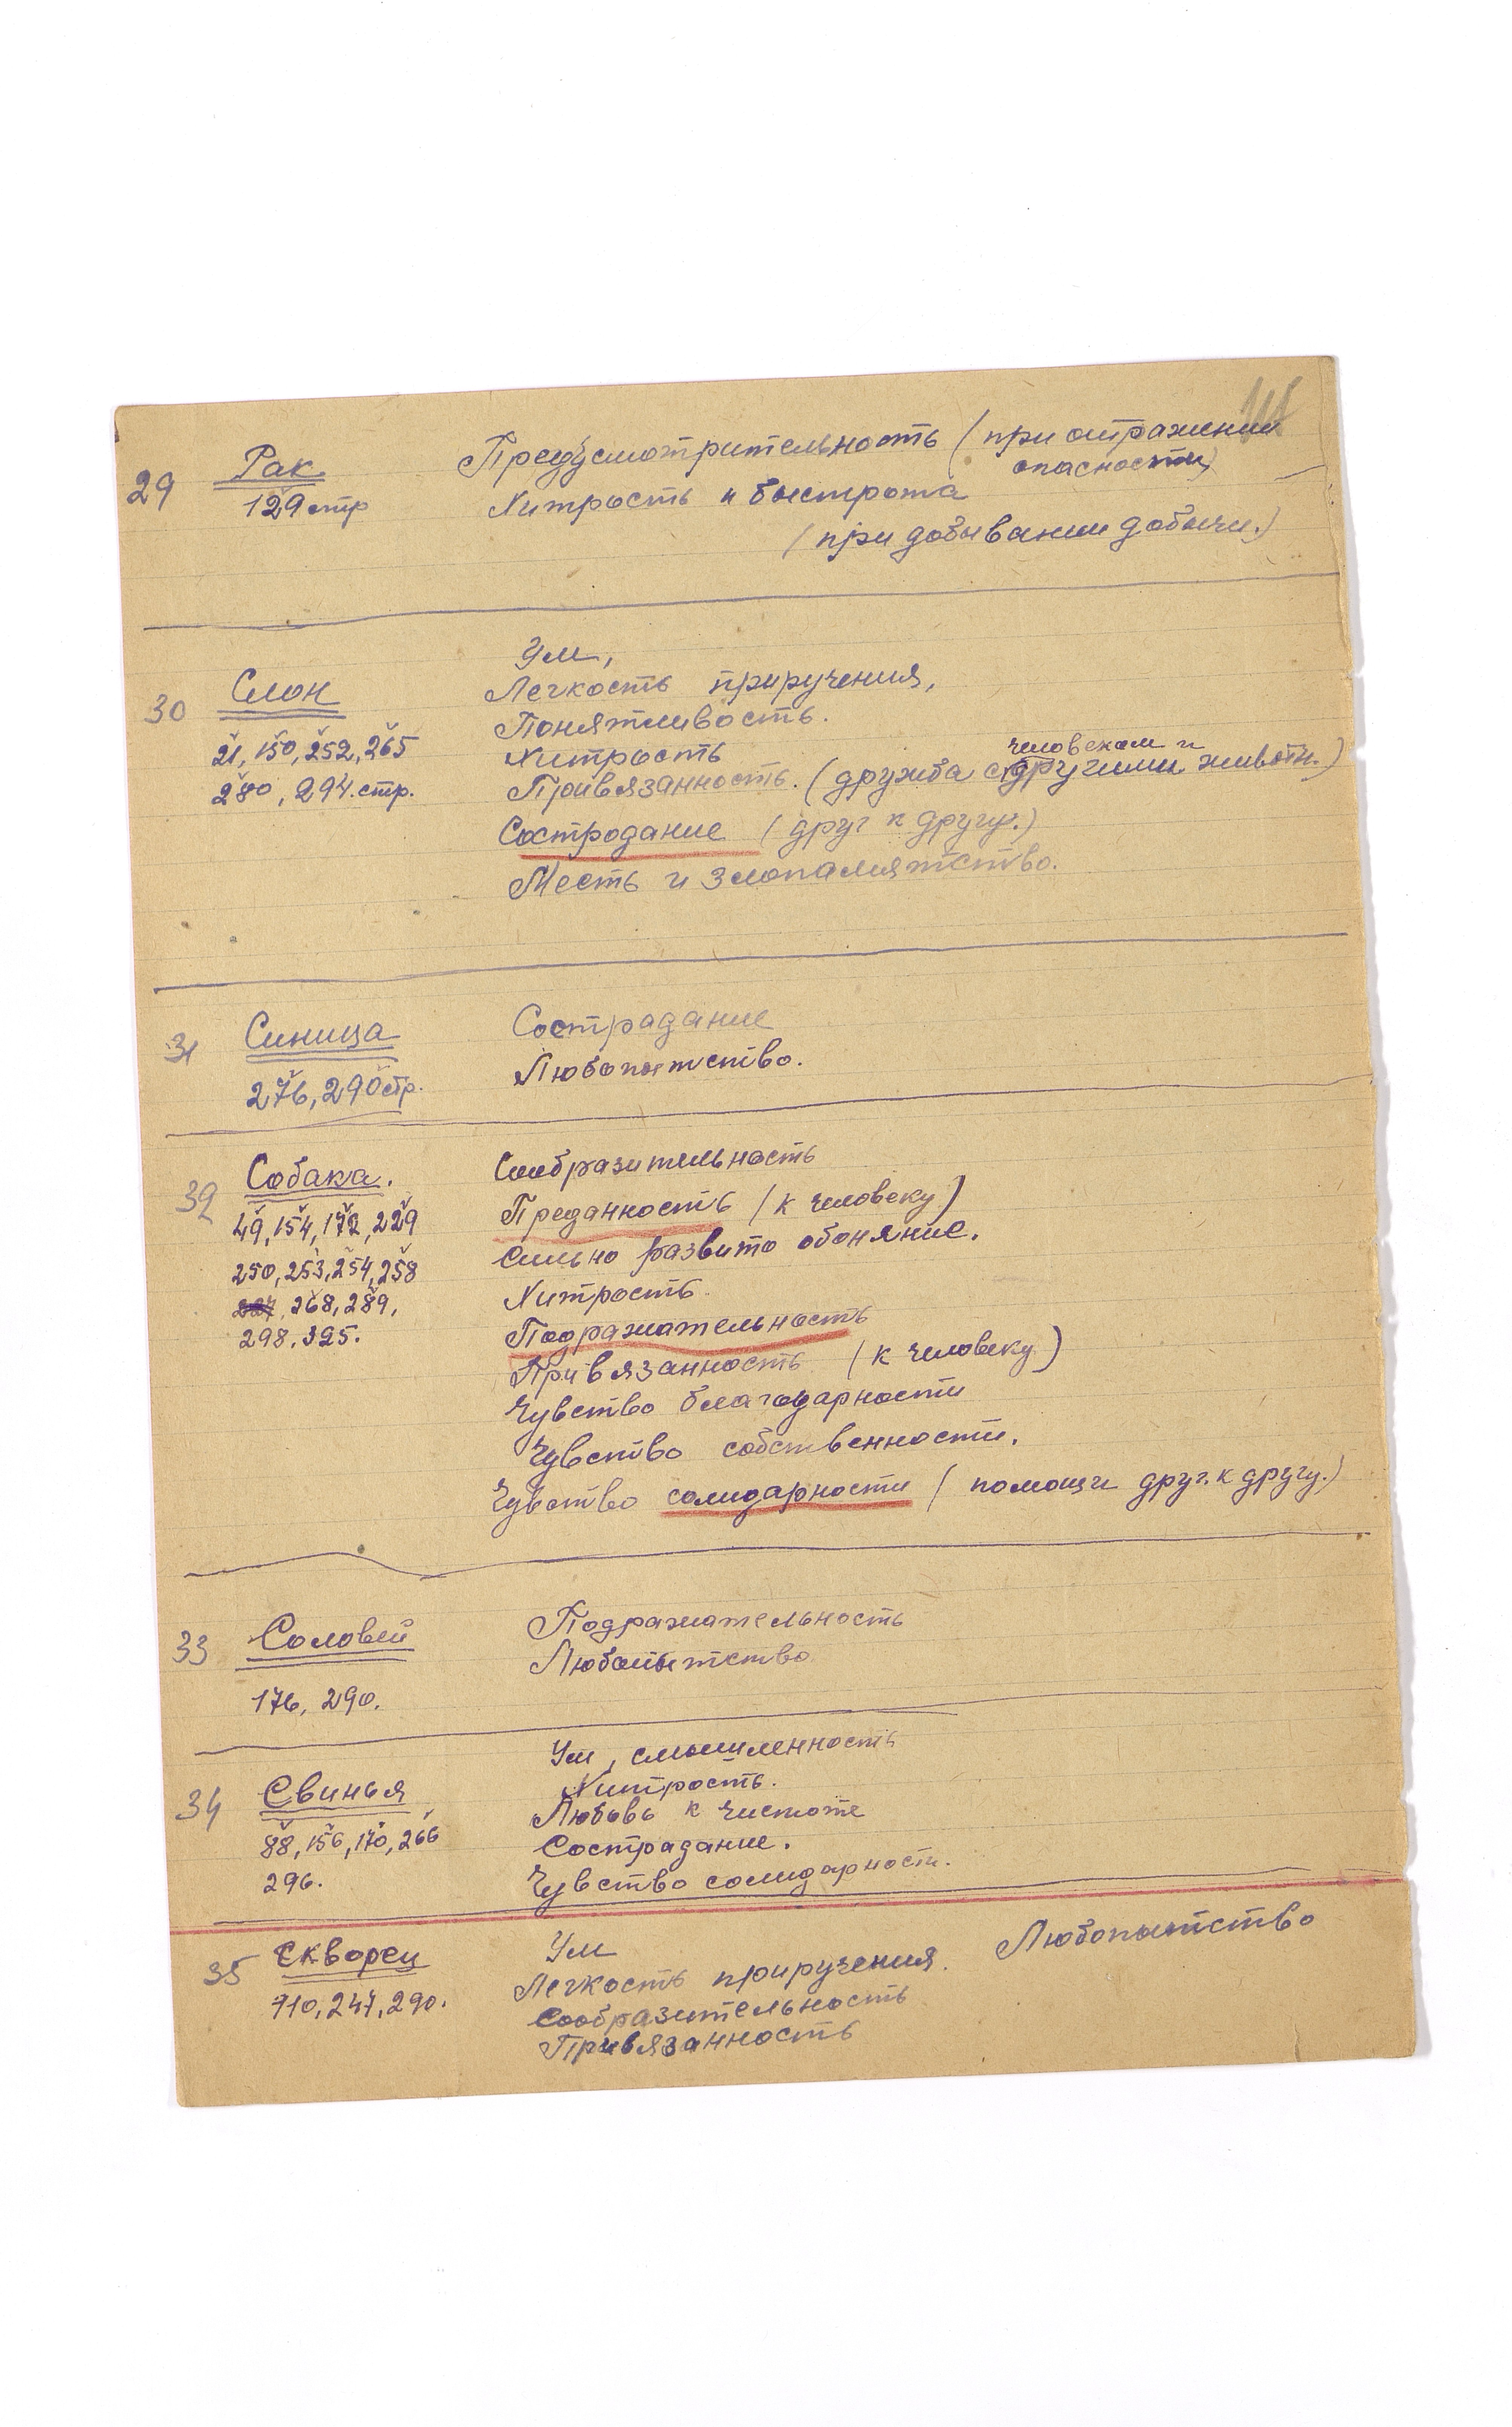 29 Рак Предусмотрительность (при отражении
опасности)
129 стр Хитрость и быстрота
(при добывании добычи.)
Ум,
30 Слон Легкость приручения,
Понятливость.
21, 150, 252, 265 Хитрость
человеком и
280, 294. стр. Привязанность. (дружба с другими животн.)
Состродание (друг к другу.)
Месть и злопамятство.
31 Синица Сострадание
276, 290 стр. Любопытство.
32 Собака. Сообразительность
49, 154, 172, 229 Преданность (к человеку)
250, 253, 254, 258 Сильно развито обоняние.
227, 268, 289, Хитрость.
298. 325. Подражательность
Привязанность (к человеку)
Чувство благодарности
Чувство собственности.
Чувство солидарности (помощи друг. к другу.)
33 Соловей Подражательность
Любопытство
176, 290.
Ум, смышленность
34 Свинья Хитрость.
Любовь к чистоте
88, 156, 170, 266 Сострадание.
296. Чувство солидарност.
35 Скворец Ум Любопытство
110, 247, 290. Легкость приручения.
Сообразительность
Привязанность